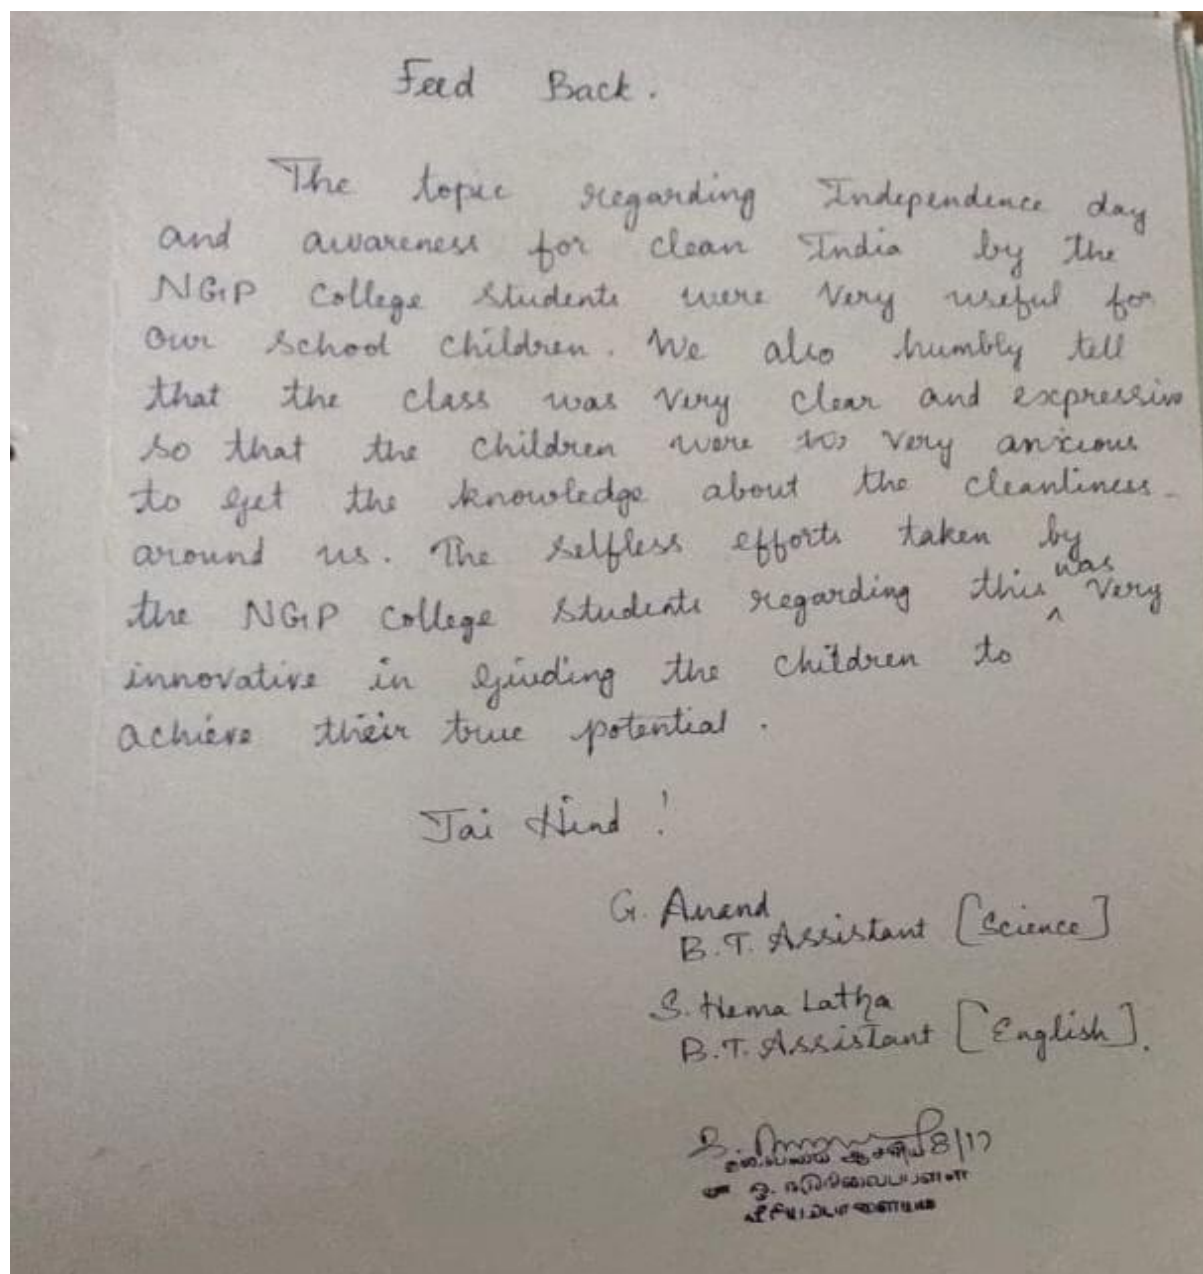 Feed Back.
The topic regarding Independence day
and awareness for clean India by the
NGP College students were very useful for
our school children. We also humbly tell
that the class was very clear and expressive
so that the children were very anxious
to get the knowledge about the cleanliness
around us. The selfless efforts taken by
the NGP college students regarding this ^was very
innovative in guiding the children to
achieve their true potential.
Jai Hind!
G. Anand
B.T. Assistant [Science]
S. Hema Latha
B.T. Assistant [English].
8/17